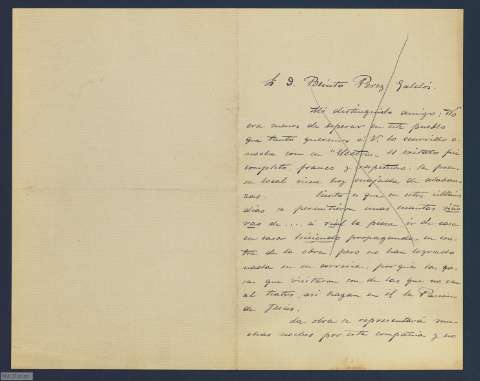 Sr. D. Benito Perez Galdós.
Mi distinguido amigo: No
era menos de esperar en este pueblo
que tanto queremos a V. lo ocurrido a-
noche con su "Electra". El exito fué
completo, franco y espontaneo. La pren-
sa local viene hoy cuajada de alaban-
zas.
Tanto es que en estos últimos
días se permitieron unas cuantas
vas de ... a real la pieza ir de casa
en casa haciendo propaganda en con-
tra de la obra, pero no han logrado
nada en su porque las ca-
sas que visitaron son de las que no van
al teatro, así hagan en él la Pasión
de Jesús.
La obra se representará mu-
chas noches por esta compañia y no